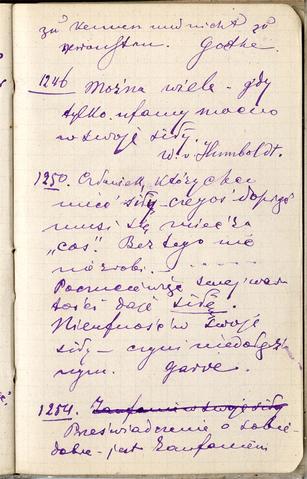 zu kennen und nicht zu
Goethe.
1246 Można wiele - gdy
tylko ufamy mocno
w swoje siły.
W. v. Humboldt.
1250. Człowiek, który chce
mieć siły czegoś dopiąć
musi się mieć za
"coś". Bez tego nic
nie zrobi.
Poczucie swej war
tości daje siłę.
Nieufność w swoje
siły - czyni niedołęż
nym. Garve.
1254. Zaufanie w swoje siły
Przeświadczenie o sobie
dobre - jest zaufaniem